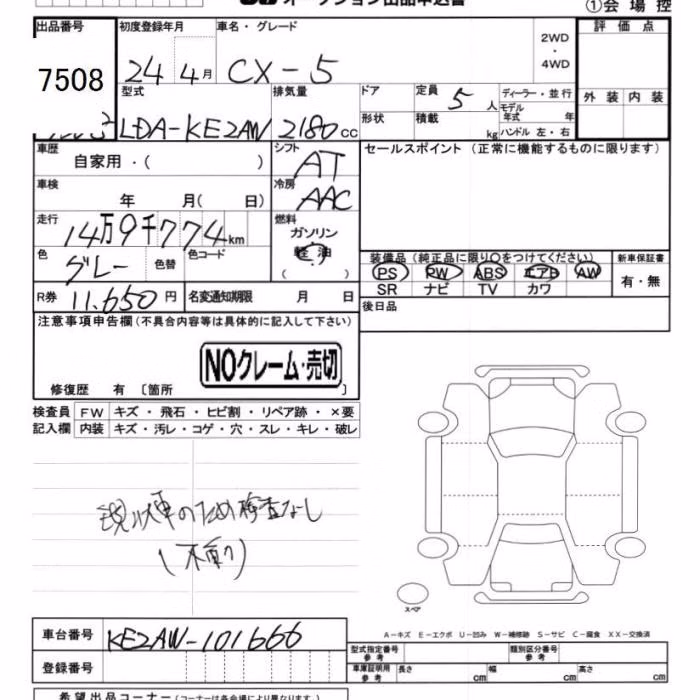 オークション出品申込書
①会場控
出品番号 初度登録年月 車名・グレード 2WD ・ 4WD 評価点
7508 24年4月 CX-5
型式 排気量 ドア 定員 5人 ディーラー・並行 外装 内装
LDA-KE2AW 2180cc 形状 積載 kg モデル年式 年 ハンドル 左・右
車歴 自家用・( ) シフト AT セールスポイント (正常に機能するものに限ります)
車検 年 月( 日) 冷房 AAC
走行 14万9千774km 燃料 ガソリン 軽油 ( )
色 グレー 色替 色コード 装備品 (純正品に限り〇をつけてください) 新車保証書
PS PW ABS エアB AW 有・無
SR ナビ TV カワ
R券 11,650円 名変通知期限 月 日 後日品
注意事項申告欄 (不具合内容等は具体的に記入して下さい)
NOクレーム・売切
修復歴 有 〔箇所 〕
検査員 FW キズ・飛石・ヒビ割・リペア跡・×要
記入欄 内装 キズ・汚レ・コゲ・穴・スレ・キレ・破レ
現状車のため検査なし
スペア
車台番号 KE2AW-101666
A-キズ E-エクボ U-凹み W-補修跡 S-サビ C-腐食 XX-交換済
登録番号 型式指定番号 参考 類別区分番号 参考
車庫証明用 参考 長さ cm 幅 cm 高さ cm
希望出品コーナー (コーナーは各会場により異なります。)